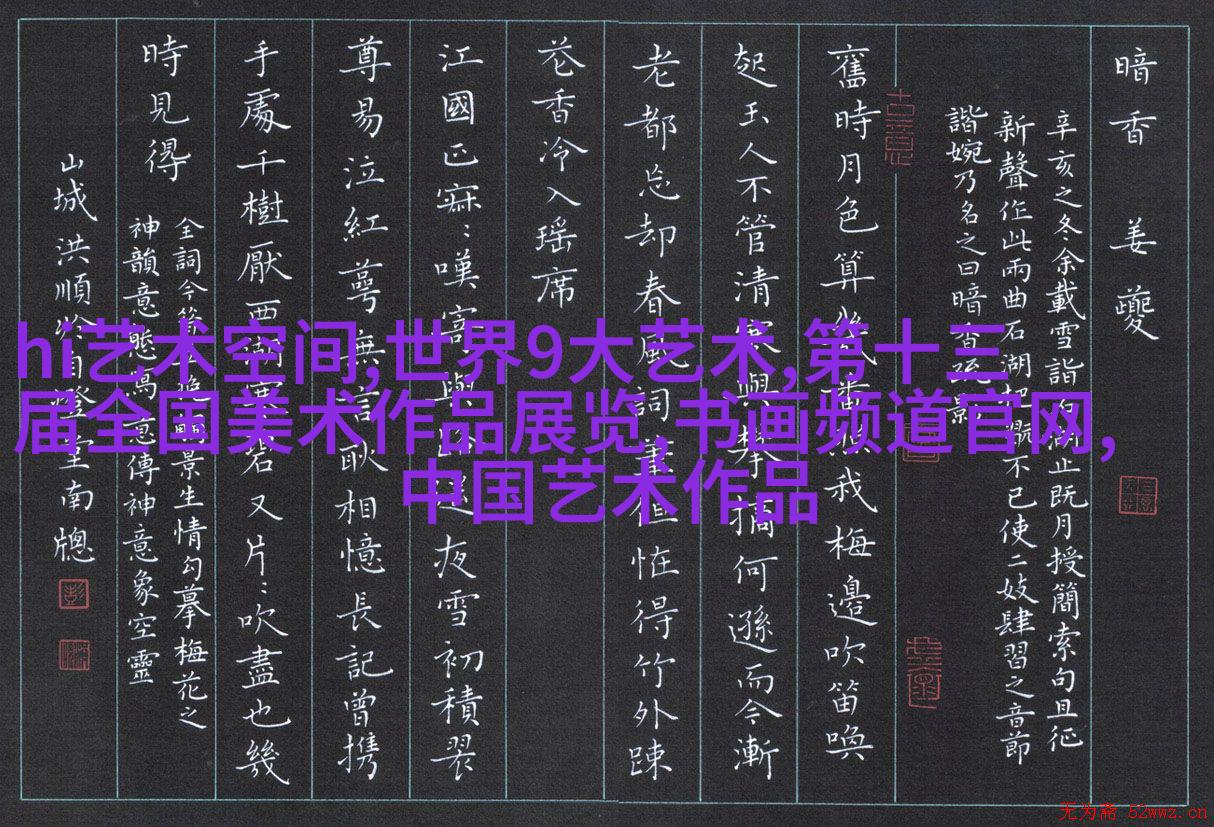 暗香 姜夔
辛亥之冬余載雪詣石湖止既月授簡索句且征
新聲作此兩曲石湖把翫不已使二妓肆習之音節
諧婉乃名之曰暗香疏影
舊時月色算幾番照我梅邊吹笛喚
起玉人不管清寒與攀摘何遜而今漸
老都忘却春風詞筆但恠得竹外疎
花香冷入瑶席
江國正寂〻嘆寄與路遥夜雪初積翠
尊易泣紅萼無言耿相憶長記曾携
手處千樹壓西湖寒碧又片〻吹盡也幾
時見得
全詞今景生情勾摹梅花之
神韻意態寫傳神意象空靈
山城洪順於自登室南牕
古意
hi艺术空间,世界9大艺术,第十三
届全国美术作品展览,书画频道官网,
中国艺术作品
无为斋 52wwz.cn